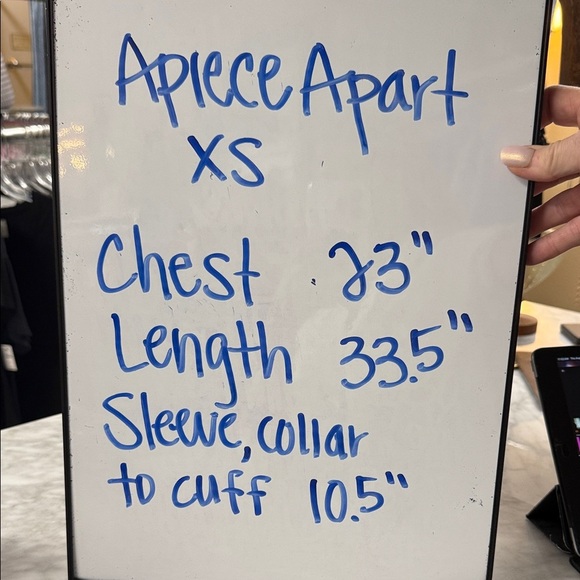 Apiece Apart
XS
Chest 23"
Length 33.5"
Sleeve, collar
to cuff 10.5"